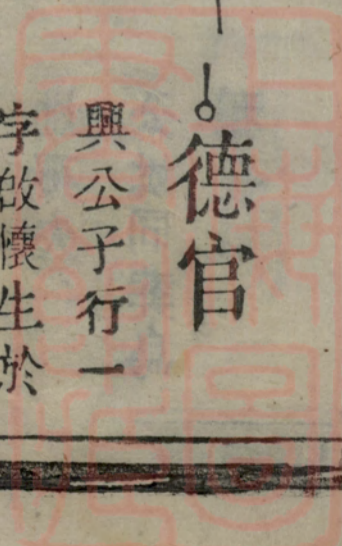 德官
興公子行一
字啟懷生於